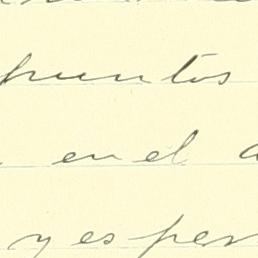 puntos
en el
y esper